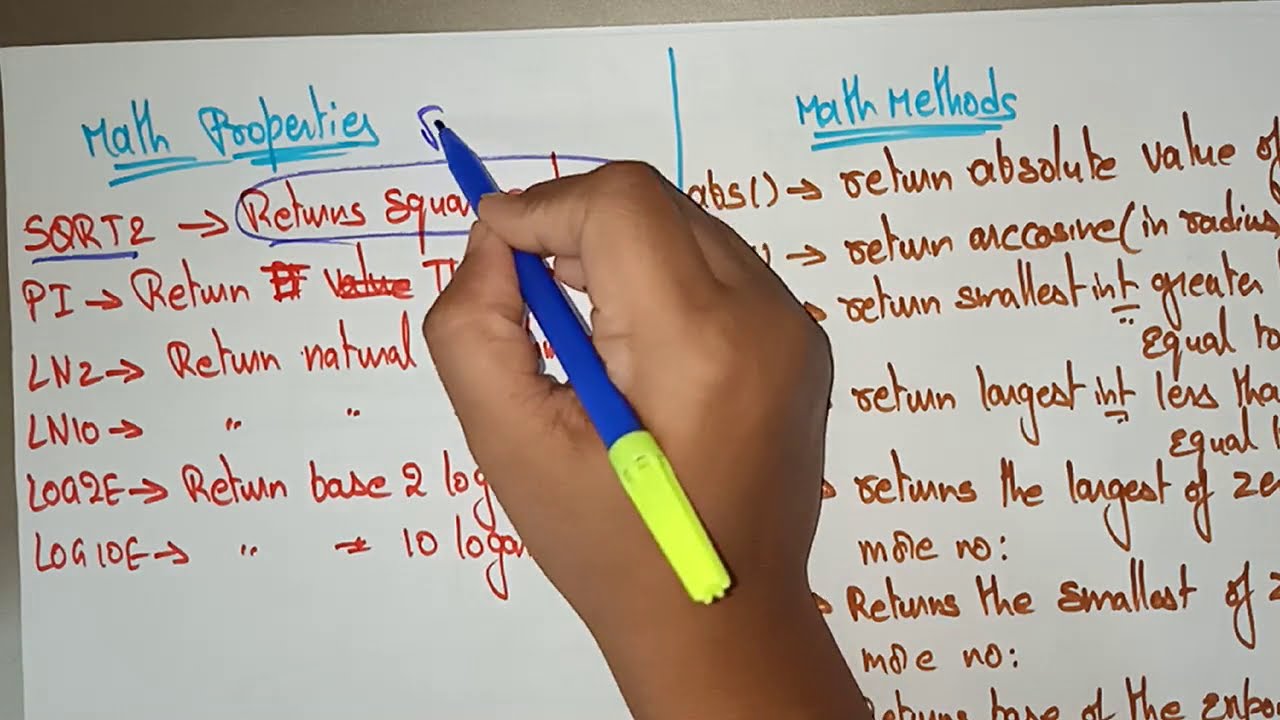 Math Properties
SQRT2 → Returns Squa
PI → Return
LN2 → Return natural
LN10 → " "
LOG2E → Return base 2 log
LOG10E → " " 10 logar
Math Methods
abs() → return absolute value of
→ return arccosine (in radius
return smallest int greater
Equal to
return largest int less tha
Equal
returns the largest of ze
more no:
Returns the smallest of
more no:
base of the